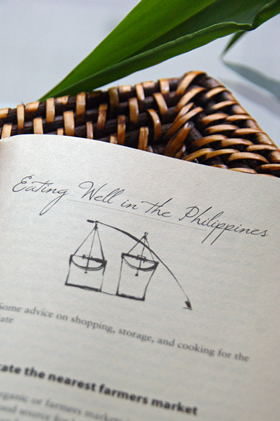 Eating Well in the Philippines
Some advice on shopping, storage, and cooking for the
ate the nearest farmers market
organic or farmers marke